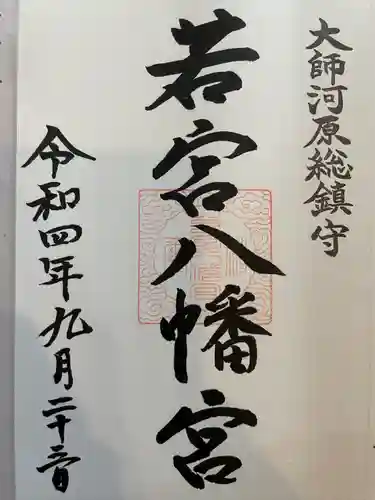 大師河原総鎮守
若宮八幡宮
令和四年九月二十三日